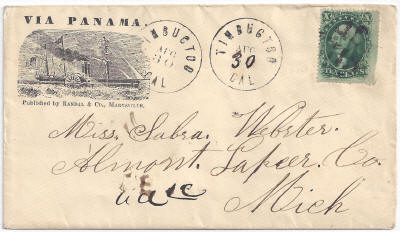 VIA PANAMA.
TIMBUCTOO
AUG
30
CAL
TIMBUCTOO
AUG
30
CAL
TEN CENTS
Published by RANDAL & CO., MARYSVILLE.
Miss. Sabra. Webster.
Almont. Lapeer. Co.
Mich